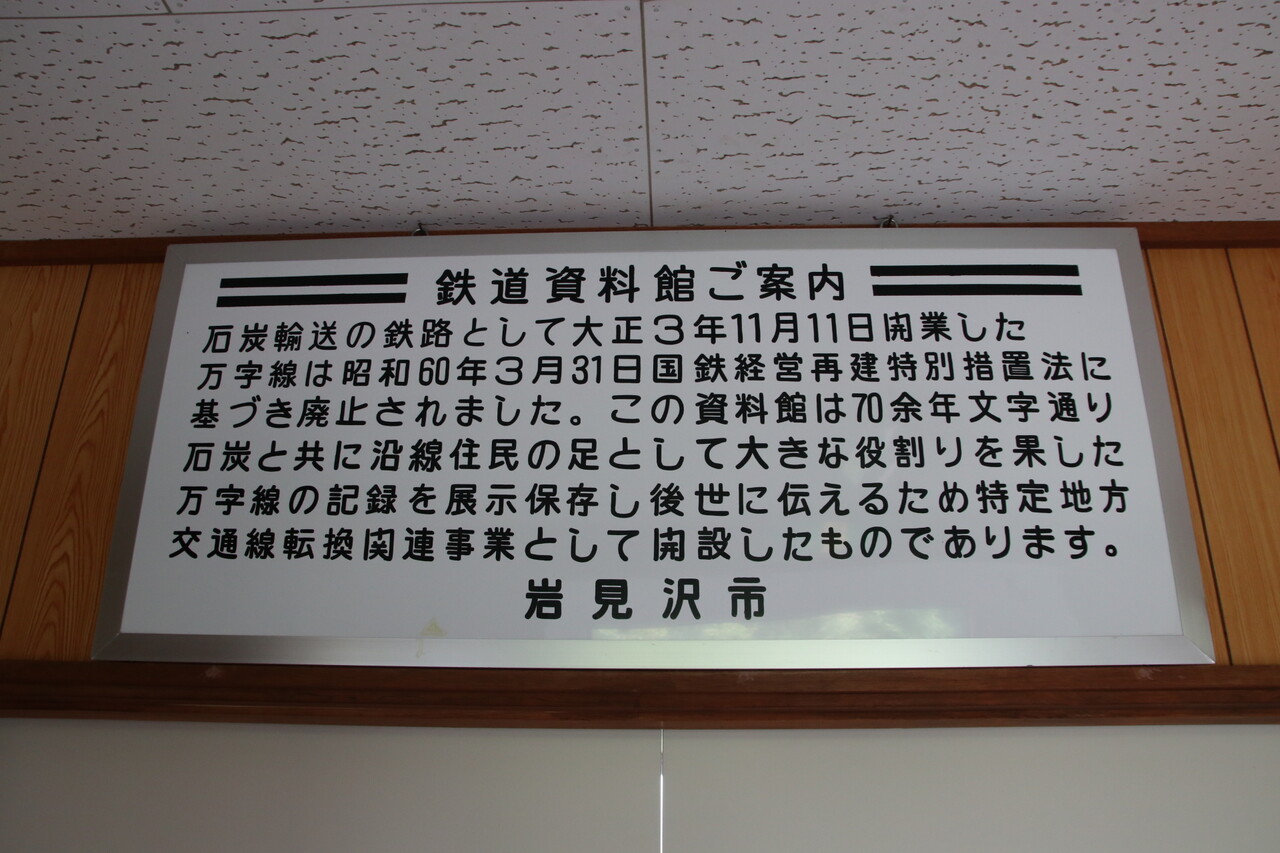 鉄道資料館ご案内
石炭輸送の鉄路として大正3年11月11日開業した
万字線は昭和60年3月31日国鉄経営再建特別措置法に
基づき廃止されました。この資料館は70余年文字通り
石炭と共に沿線住民の足として大きな役割りを果した
万字線の記録を展示保存し後世に伝えるため特定地方
交通線転換関連事業として開設したものであります。
岩見沢市